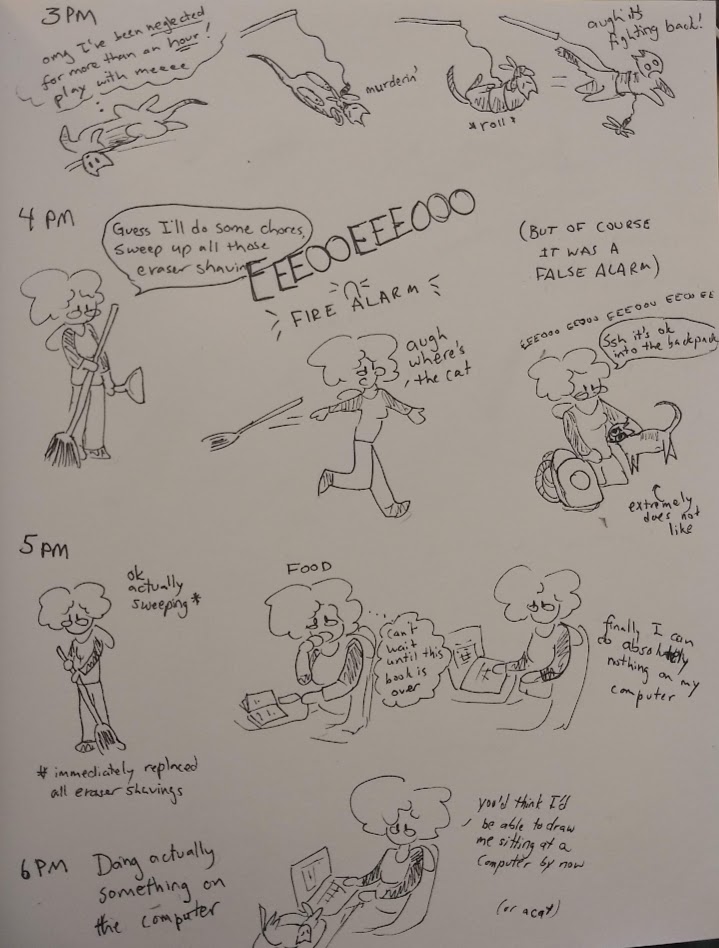 3 PM
omg I've been neglected
for more than an hour!
play with meeee
murderin'
*roll*
=
augh it's
fighting back!
4 PM
Guess I'll do some chores,
sweep up all those
eraser shavin
EEEOOEEEOOO
FIRE ALARM
augh
where's
the cat
(BUT OF COURSE
IT WAS A
FALSE ALARM)
EEEOOO EEOOO EEEOOU EEOO EE
Ssh it's ok
into the backpack
extremely
does not
like
5 PM
ok
actually
sweeping*
* immediately replaced
all eraser shavings
FOOD
...
can't
wait
until this
book is
over
finally I can
do absolutely
nothing on my
computer
6 PM
Doing actually
something on
the computer
you'd think I'd
be able to draw
me sitting at a
computer by now
(or a cat)